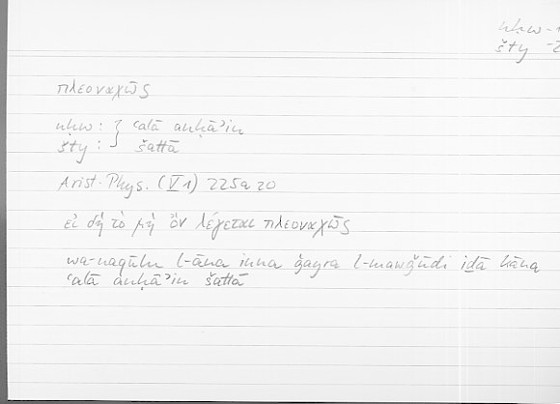 nḥw -
šty -
πλεοναχῶς
nḥw : } ʿalā anḥāʾin
šty : } šattā
Arist. Phys. (V 1) 225a20
εἰ δὴ τὸ μὴ ὂν λέγεται πλεοναχῶς
wa-naqūlu l-āna inna ġayra l-mawǧūdi iḏā kāna
ʿalā anḥāʾin šattā